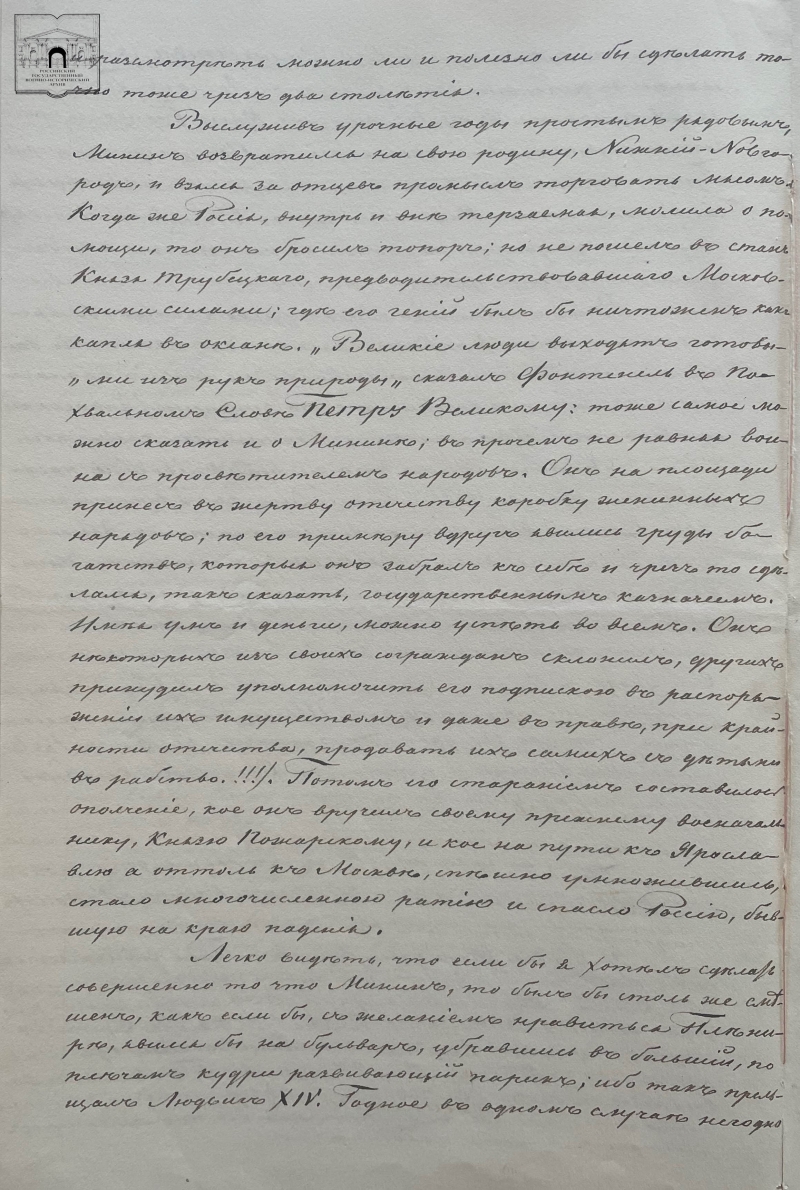 РОССИЙСКИЙ
ГОСУДАРСТВЕННЫЙ
ВОЕННО-ИСТОРИЧЕСКИЙ
АРХИВ
и разсмотрѣть можно ли и полезно ли бы сдѣлать то-
чно тоже чрезъ два столѣтія.
Выслуживъ урочные годы простымъ рядовымъ,
Мининъ возвратился на свою родину, Нижній-Новго-
родъ, и взялся за отцевъ промыслъ торговать мясомъ.
Когда же Россія, внутрь и внѣ терзаемая, молила о по-
мощи, то онъ бросилъ топоръ; но не пошелъ въ станъ
Князя Трубецкаго, предводительствовавшаго Москов-
скими силами; гдѣ его геній былъ бы ничтоженъ какъ
капля въ океанѣ. „Великіе люди выходятъ готовы-
„ми изъ рукъ природы„ сказалъ Фонтенель въ По-
хвальномъ Словѣ Петру Великому: тоже самое мо-
жно сказать и о Мининѣ; въ прочемъ не равняя вои-
на съ просвѣтителемъ народовъ. Онъ на площади
принесъ въ жертву отечеству коробку женинныхъ
нарядовъ; по его примѣру вдругъ явились груды бо-
гатствъ, которыя онъ забралъ къ себѣ и чрезъ то сдѣ-
лался, такъ сказать, государственнымъ казначеемъ.
Имѣя умъ и деньги, можно успѣть во всемъ. Онъ
нѣкоторыхъ изъ своихъ согражданъ склонилъ, другихъ
принудилъ уполномочить его подпискою въ распоря-
женіи ихъ имуществомъ и даже въ правѣ, при край-
ности отечества, продавать ихъ самихъ съ дѣтьми
въ рабство. !!!/. Потомъ его стараніемъ составилось
ополченіе, кое онъ вручилъ своему прежнему военачаль-
нику, Князю Пожарскому, и кое на пути къ Яросла-
влю а оттоль къ Москвѣ, спѣшно умножившись,
стало многочисленною ратію и спасло Россію, быв-
шую на краю паденія.
Легко видѣть, что если бы я хотѣлъ сдѣлать
совершенно то что Мининъ, то былъ бы столь же смѣ-
шенъ, какъ если бы, съ желаніемъ нравиться Плѣни-
рѣ, явился бы на бульваръ, убравшись въ большій, по
плечамъ кудри развивающій парикъ; ибо такъ прель-
щалъ Людвигъ XIV. Годное въ одномъ случаѣ негодно